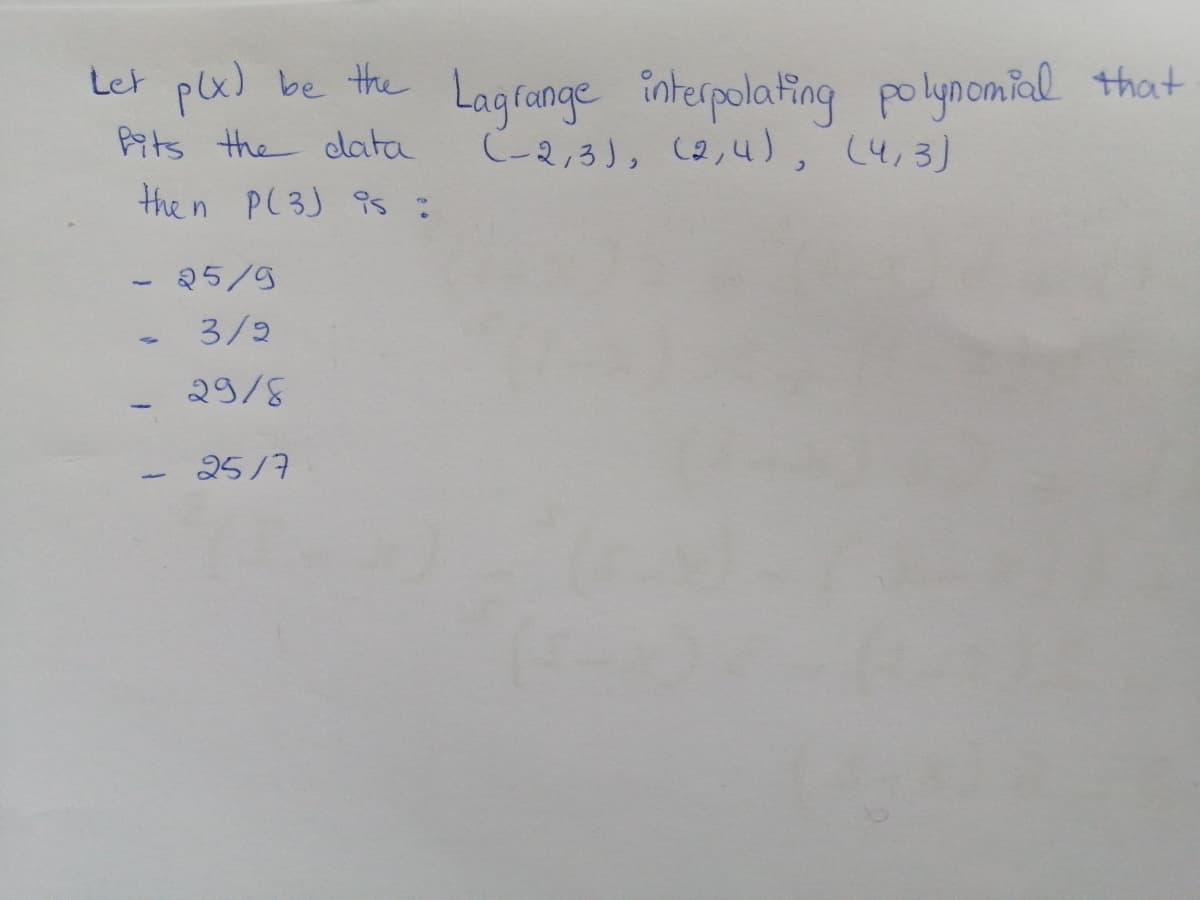 Let p(x) be the Lagrange interpolating polynomial that
fits the data (-2,3), (2,4), (4,3)
then P(3) is :
- 25/9
- 3/2
- 29/8
- 25/7